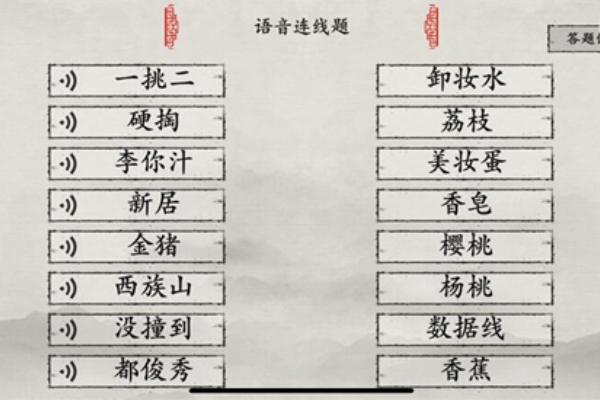 语音连线题
答题
一挑二 卸妆水
硬掏 荔枝
李你汁 美妆蛋
新居 香皂
金猪 樱桃
西族山 杨桃
没撞到 数据线
都俊秀 香蕉